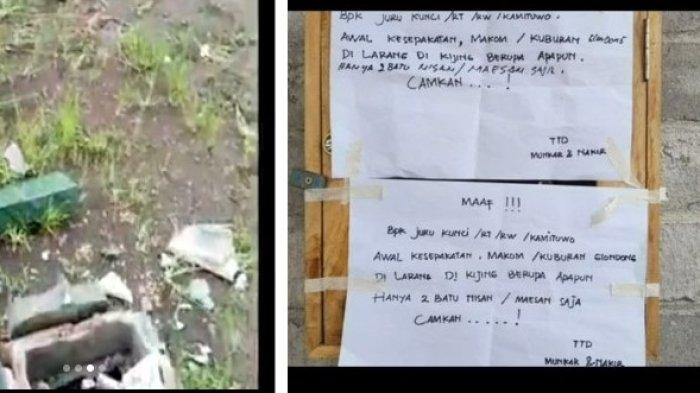 BPK JURU KUNCI /RT /RW /KAMITUWO.
AWAL KESEPAKATAN, MAKOM / KUBURAN GLONDONG
DI LARANG DI KIJING BERUPA APAPUN.
HANYA 2 BATU NISAN / MAESAN SAJA.
CAMKAN . . . . !
TTD
MUNKAR & NAKIR
MAAF !!!
BPK JURU KUNCI /RT /RW /KAMITUWO
AWAL KESEPAKATAN. MAKOM /KUBURAN GLONDONG
DI LARANG DI KIJING BERUPA APAPUN
HANYA 2 BATU NISAN / MAESAN SAJA
CAMKAN . . . . . !
TTD
MUNKAR & NAKIR